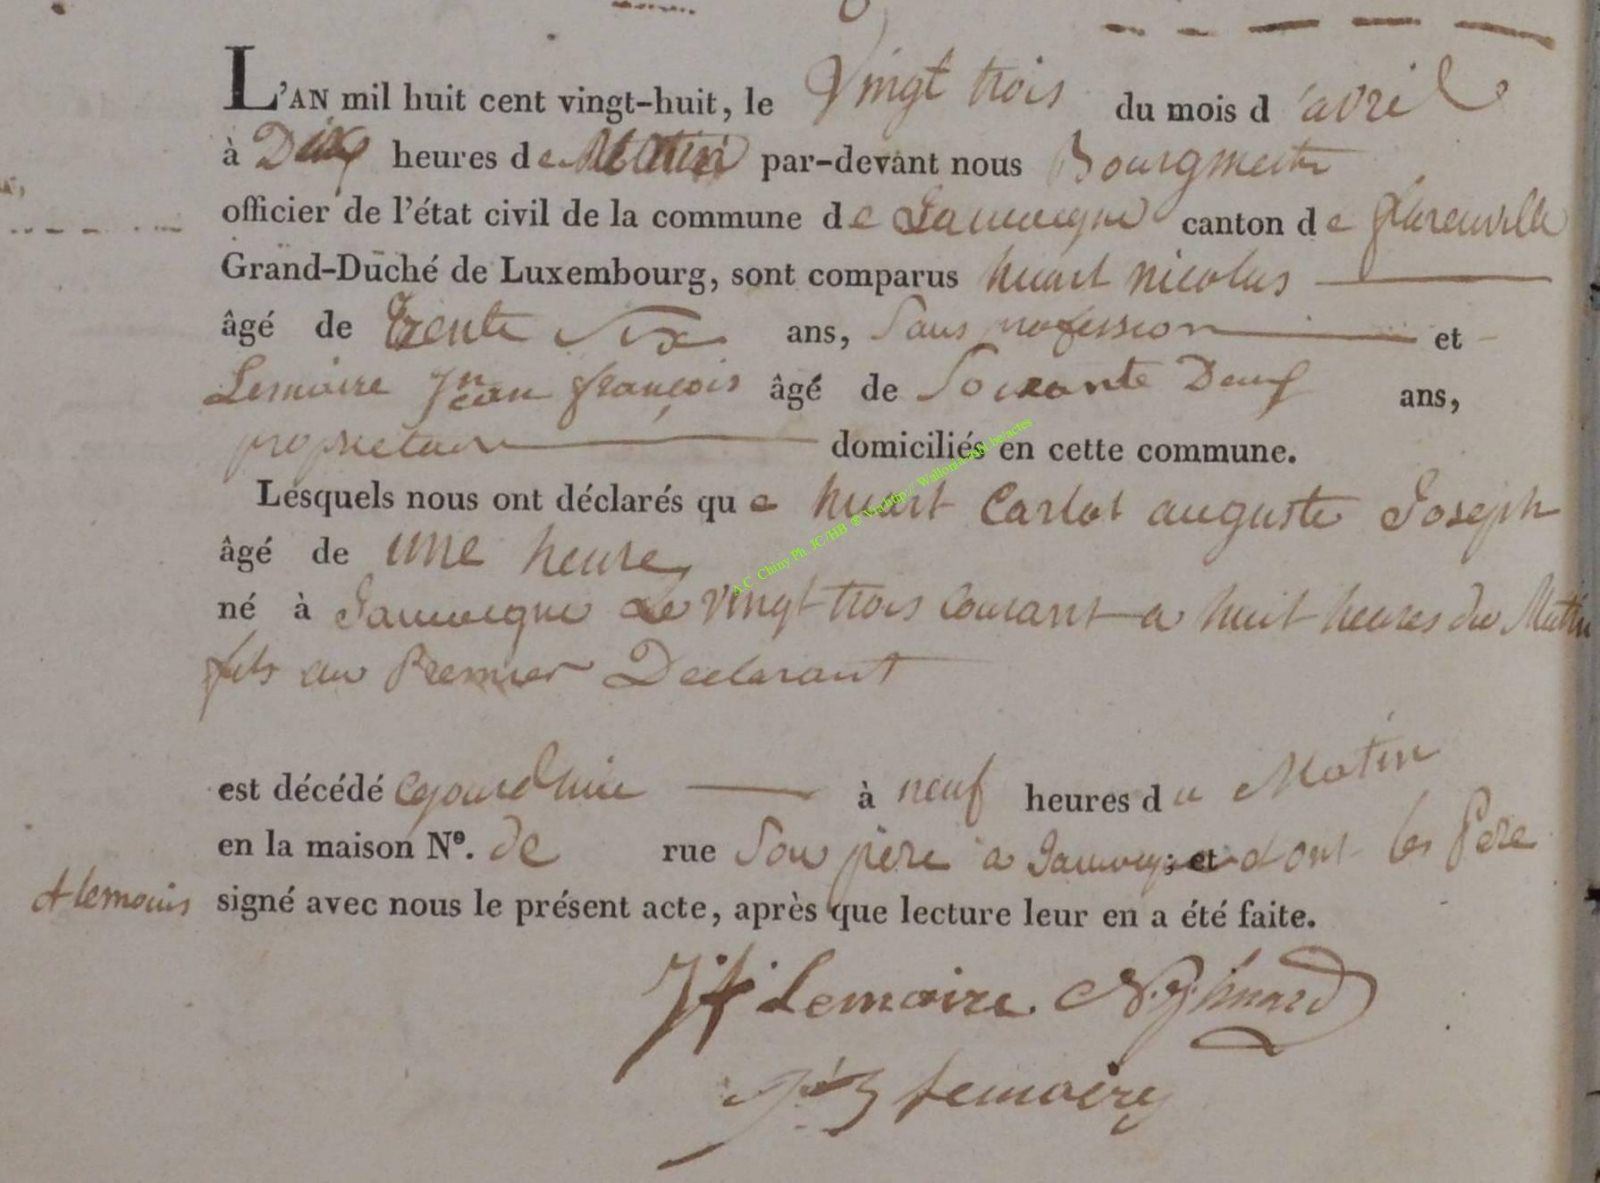 L'AN mil huit cent vingt-huit, le Vingt trois du mois d'avril
à Dix heures de Matin par-devant nous Bourgmestre
officier de l'état civil de la commune de Jamoigne canton de florenville
Grand-Duché de Luxembourg, sont comparus huart nicolas
âgé de trente six ans, Sans profession et
Lemoire Jean françois âgé de Soixante Deux ans,
proprietaire domiciliés en cette commune.
Lesquels nous ont déclarés que huart Carlot auguste Joseph
âgé de une heure
né à Jamoigne le vingt trois Courant a huit heures du Matin
fils du Premier Declarant
est décédé à neuf heures du Matin
en la maison Nº. de rue Son père a Jamoigne et dont les Père
signé avec nous le présent acte, après que lecture leur en a été faite.
Lemoire.
A.C Chiny Ph. JC/HB